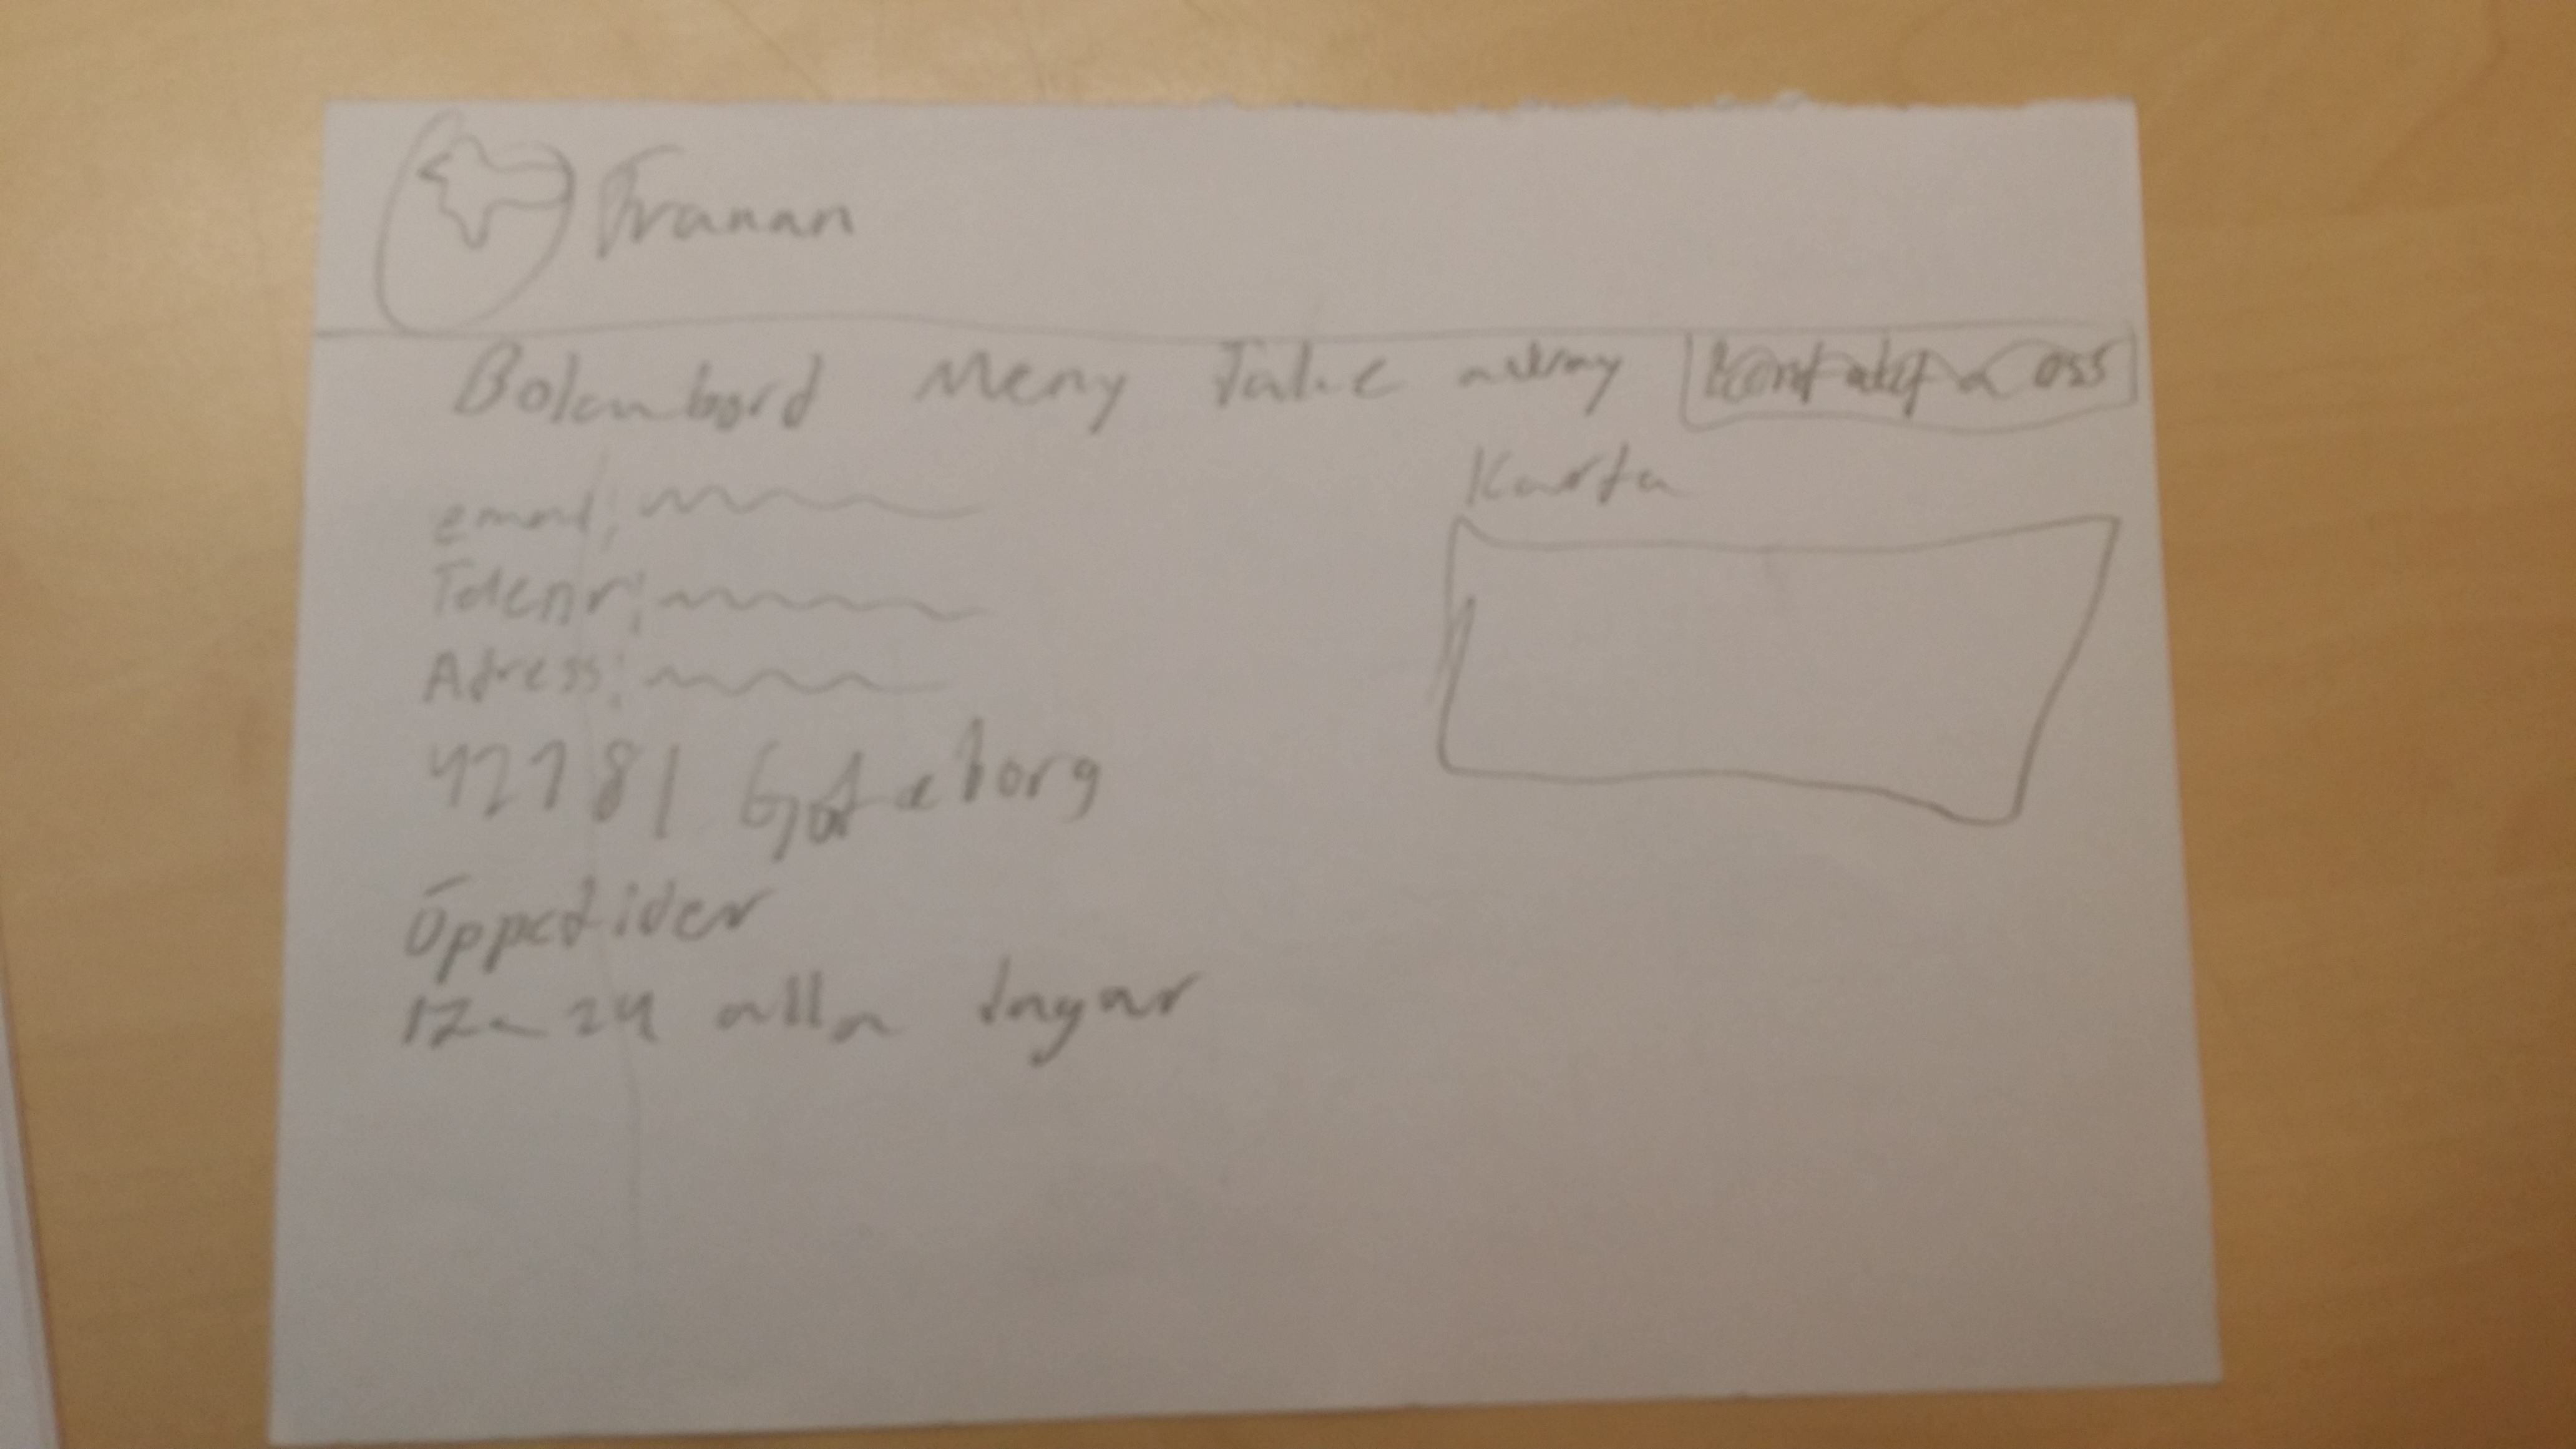 Tranan
Boka bord Meny Take away Kontakta oss
Karta
email:
Telenr:
Adress:
42781 Göteborg
Öppetider
12-24 alla dagar